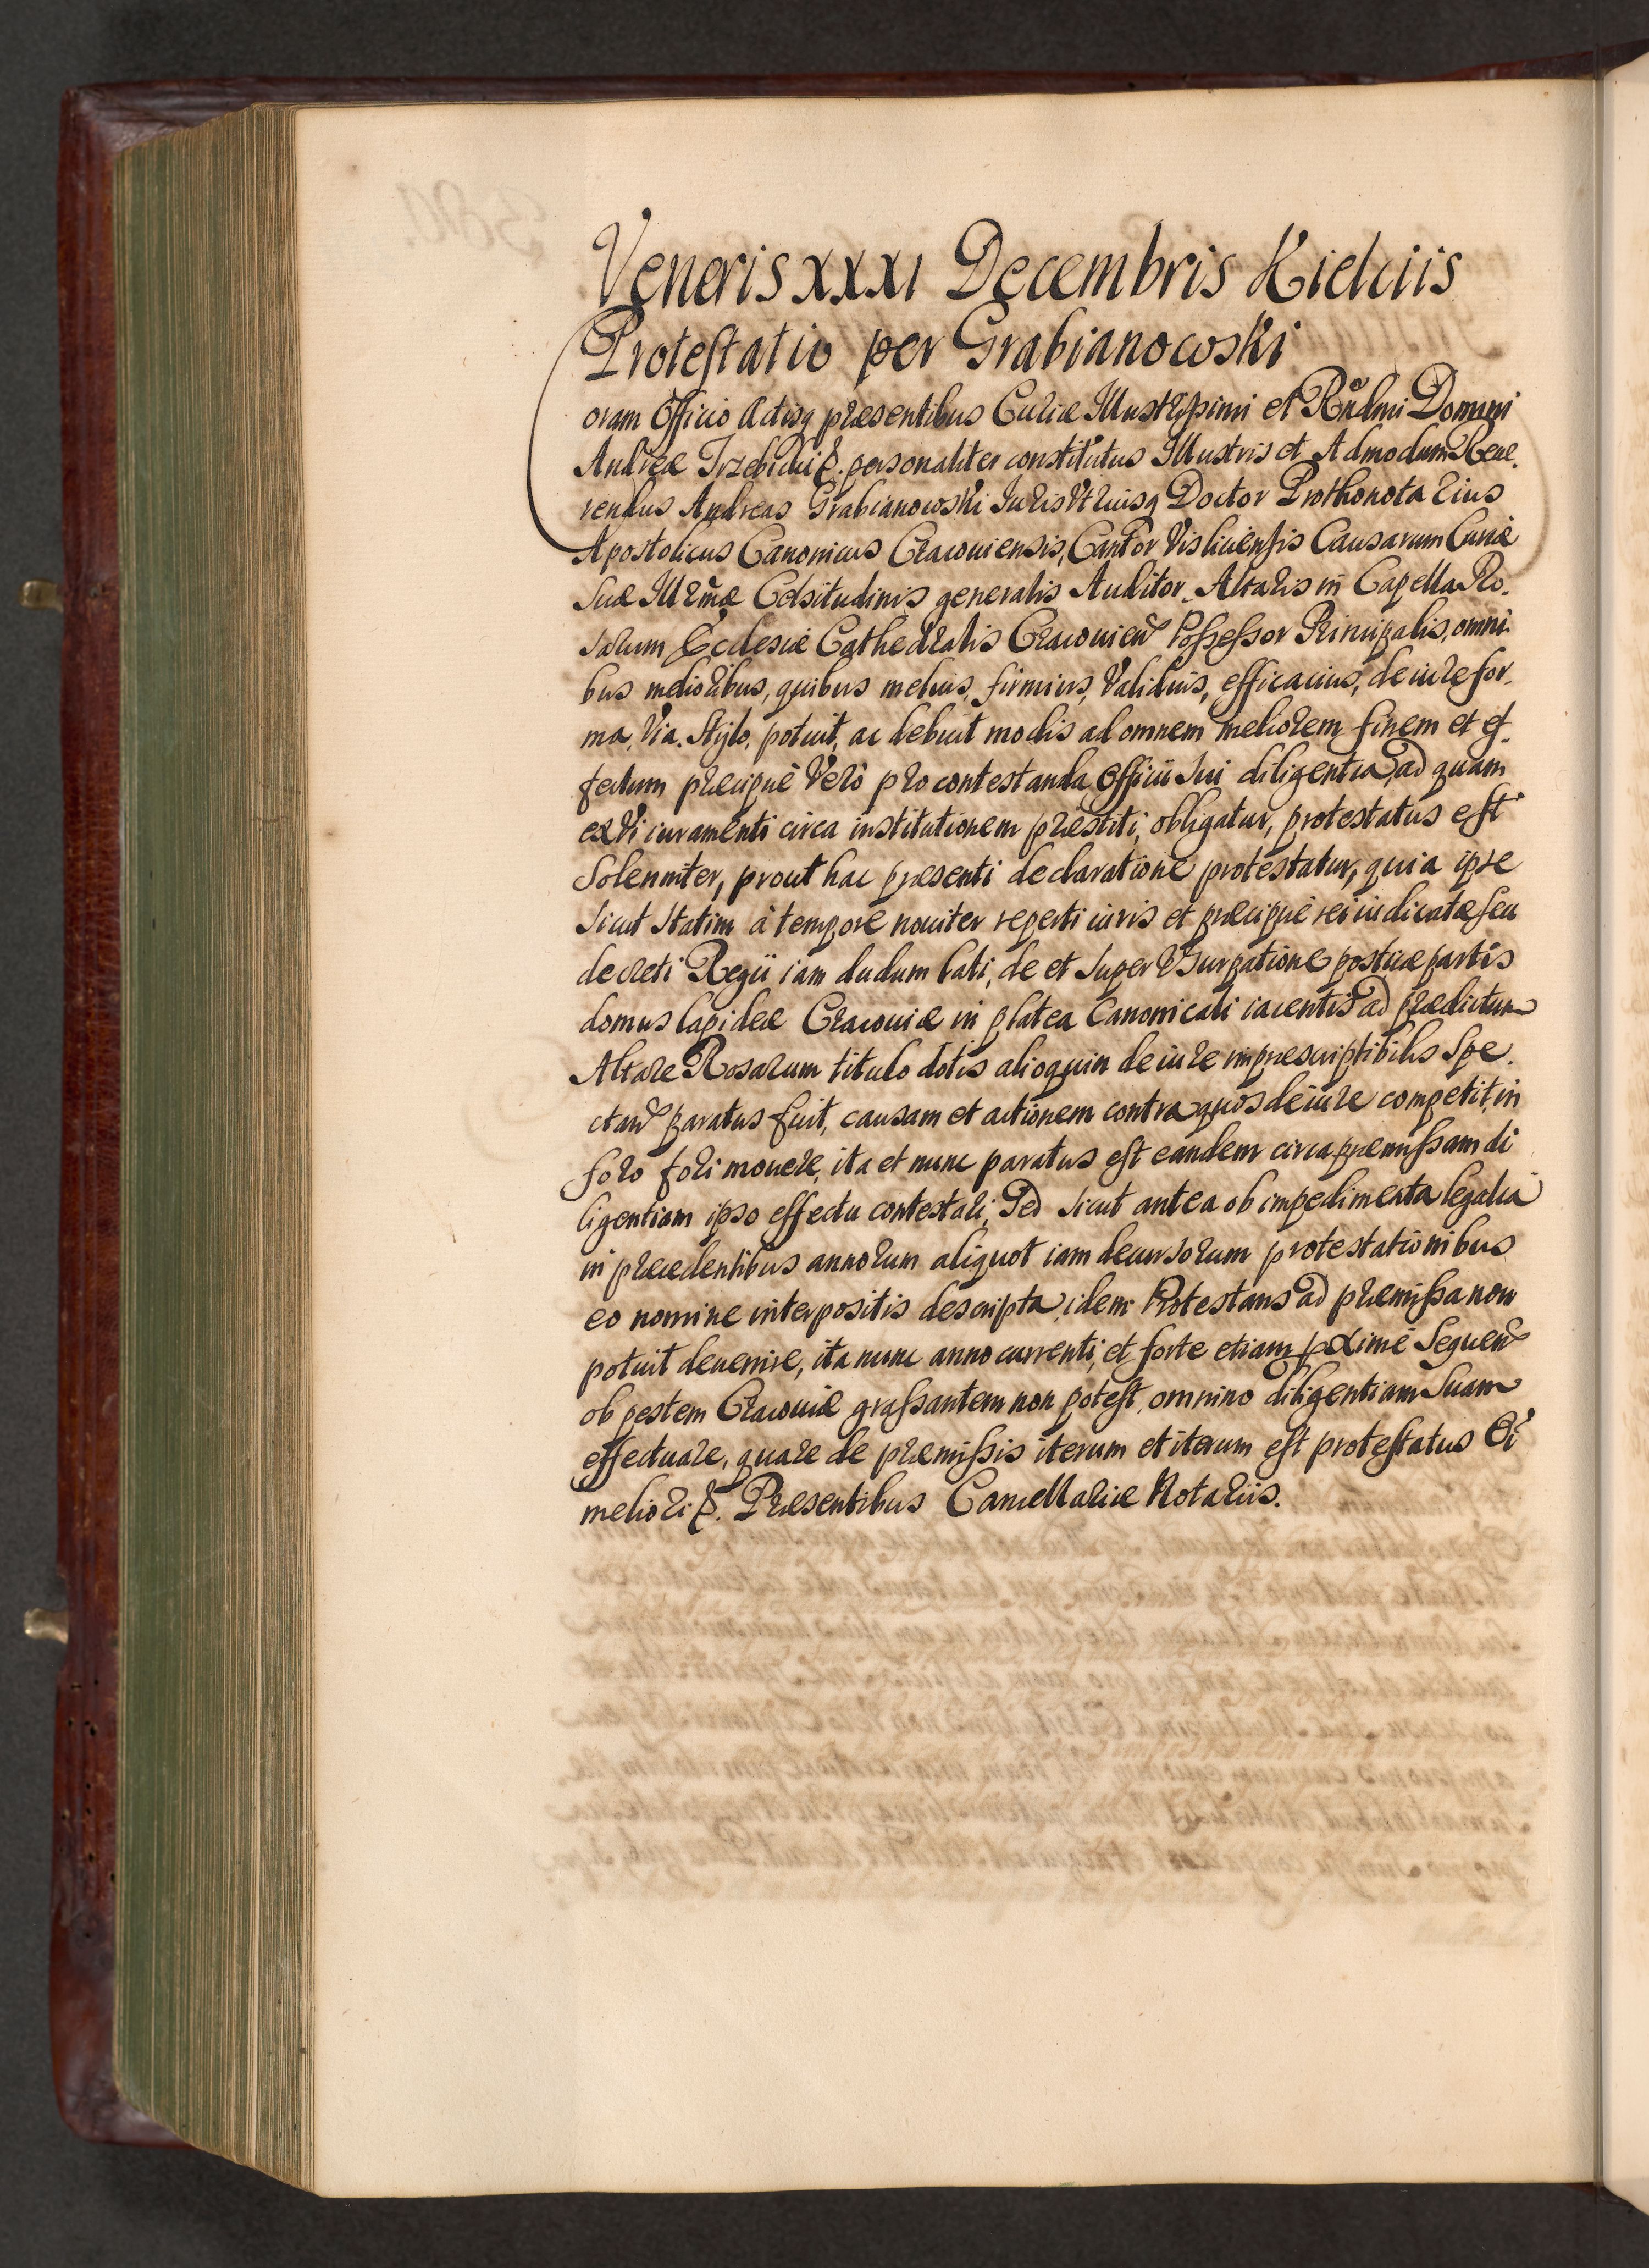 Veneris XXXI Decembris Kielciis
Protestatio per Grabianowski
Coram Officio Actisq præsentibus Curiæ Illustrissimi et Rndmi Domini
Andreæ Trzebicki &. personaliter constitutus Illustris et Admodum Reue.
rendus Andreas Grabianowski Iuris Vtriusq Doctor Prothonotarius
Apostolicus Canonicus Cracouiensis, Cantor Visliciensis Causarum Curiæ
Suæ Illrmæ Celsitudinis generalis Auditor. Altaris in Capella Ro.
sarum Ecclesiæ Cathedralis Cracouien Possessor Principalis, omni.
bus melioribus, quibus melius, firmius, Validius, efficacius, de iure for.
ma, Via. Stylo, potuit, ac debuit modis ad omnem meliorem finem et ef.
fectum præcipuè Verò pro contestanda Officii sui diligentia, ad quam
ex Vi iuramenti circa institutionem præstiti, obligatur, protestatus est
Solenniter, prout hac præsenti declaratione protestatur, quia ipse
sicut statim à tempore nouiter reperti iuris et præcipuè rei iudicatæ seu
decreti Regii iam dudum lati, de et super Vsurpatione posticæ partis
domus lapideæ Cracouiæ in platea Canonicali iacentis ad prædictum
Altare Rosarum titulo dotis alioquin de iure impræscriptibilis Spe.
ctan paratus fuit, causam et actionem contra quos de iure competit, in
foro fori mouere, ita et nunc paratus est eandem circa præmissam di
ligentiam ipso effectu contestari, Sed sicut antea ob impedimenta legalia
in præcedentibus annorum aliquot iam decursorum protestationibus
eo nomine interpositis descripta, idem Protestans ad præmissa non
potuit deuenire, ita nunc anno currenti, et forte etiam pximè Sequen
ob pestem Cracouiæ grassantem non potest, omnino diligentiam Suam
effectuare, quare de præmissis iterum et iterum est protestatus Oi
meliori &. Præsentibus Cancellariæ Notariis.